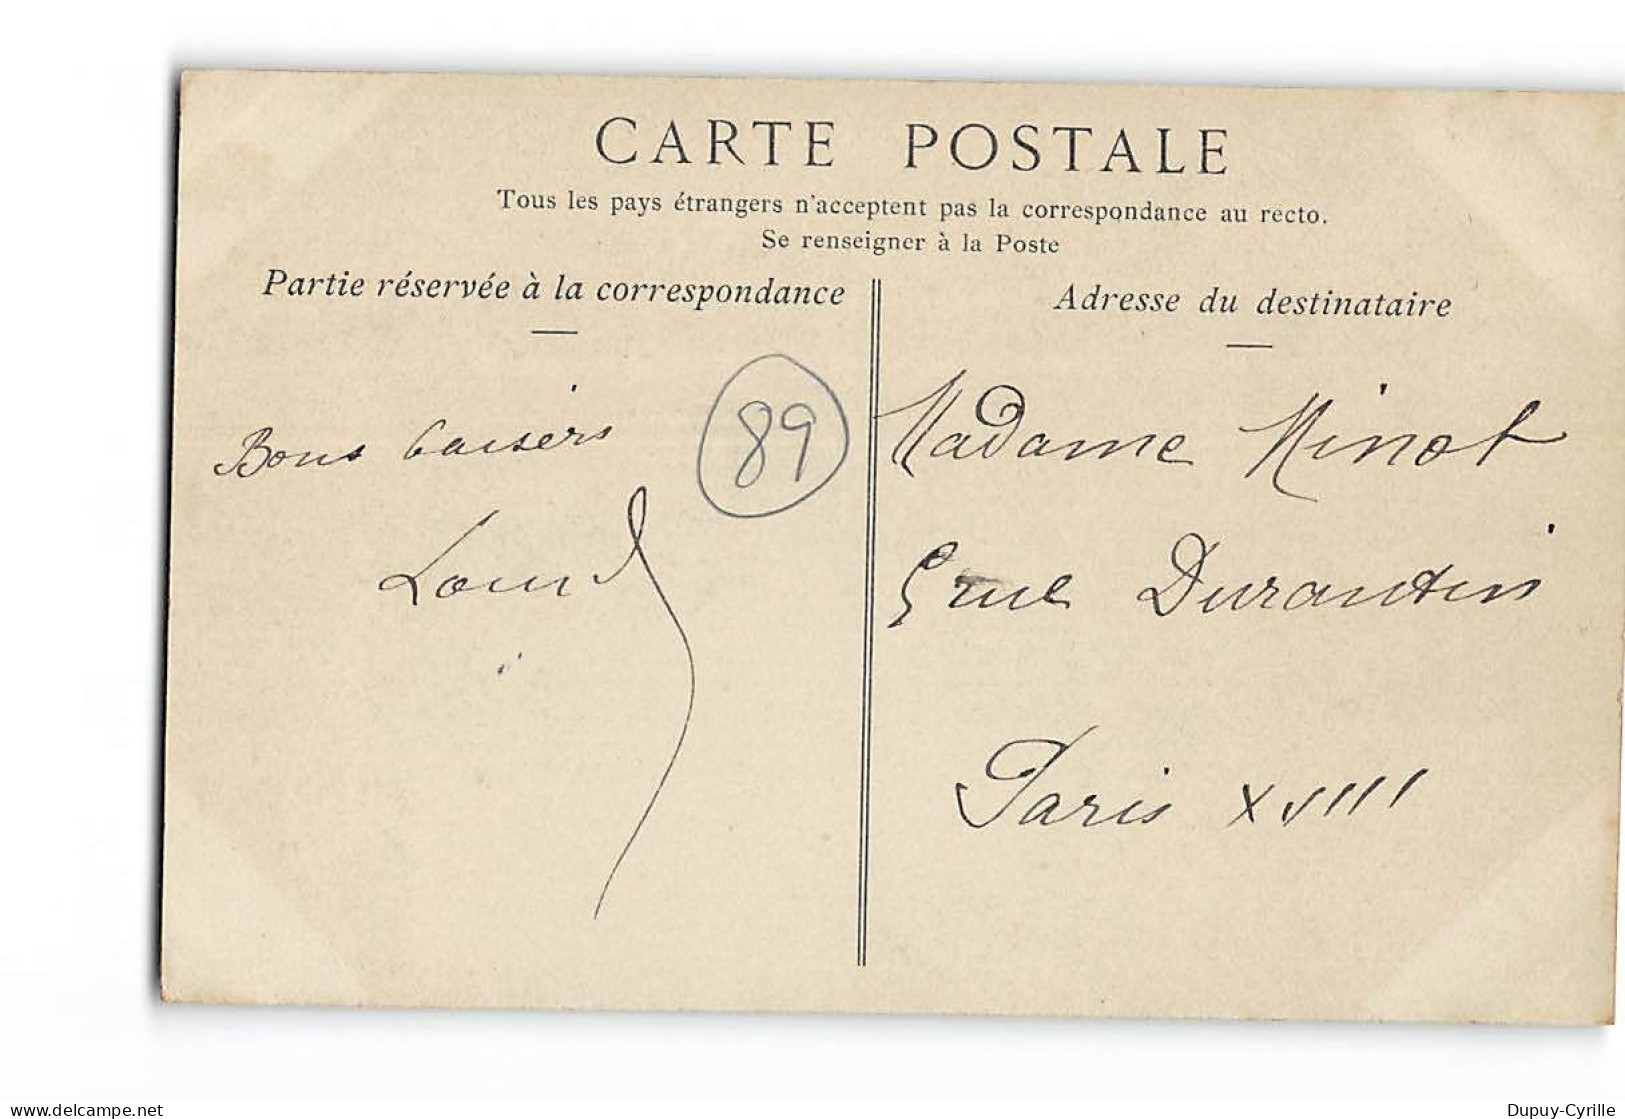 CARTE POSTALE
Tous les pays étrangers n'acceptent pas la correspondance au recto.
Se renseigner à la Poste
Partie réservée à la correspondance
Adresse du destinataire
Bons baisers
89
Madame Minot
5 rue Durantin
Paris XVIII
delcampe.net
Dupuy-Cyrille